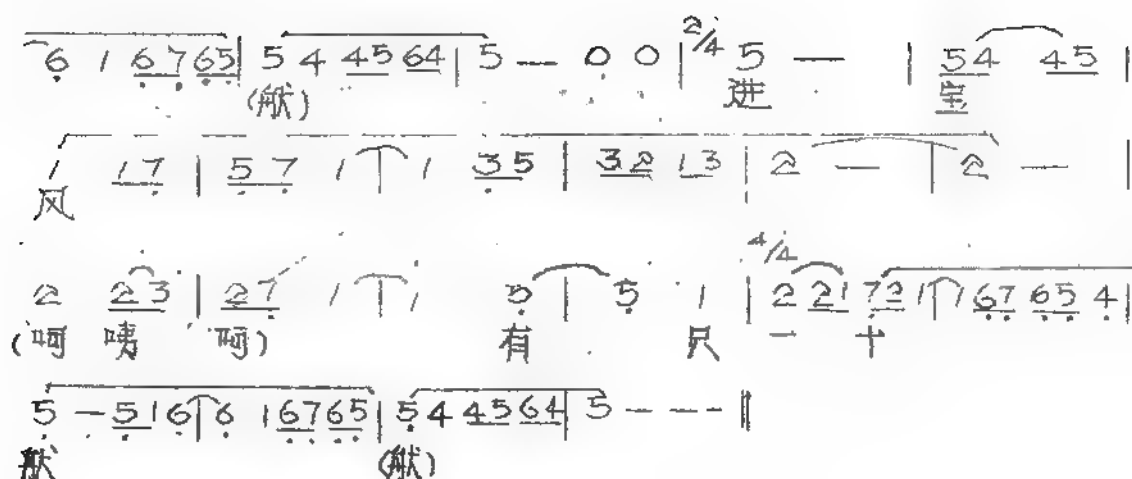 6̣ 1 6̣7̣6̣5̣ | 5 4 45 64 | 5 — 0 0 | 2/4 5 — | 54 45 |
(献) 进 宝
1 17̣ | 5̣7̣ 1 | 1 3̣5 | 32 13 | 2 — | 2 — |
风
2 23 | 27̣ 1 | 1 5̣ | 5̣ 1 | 4/4 2 21 7̣2 1 | 1 6̣7̣ 6̣5̣ 4̣ |
(呵 咦 呵) 有 只 一 十
5̣ — 5̣1 6̣ | 6̣ 1 6̣7̣6̣5̣ | 5̣ 4 45 64 | 5 — — — ‖
献 (献)